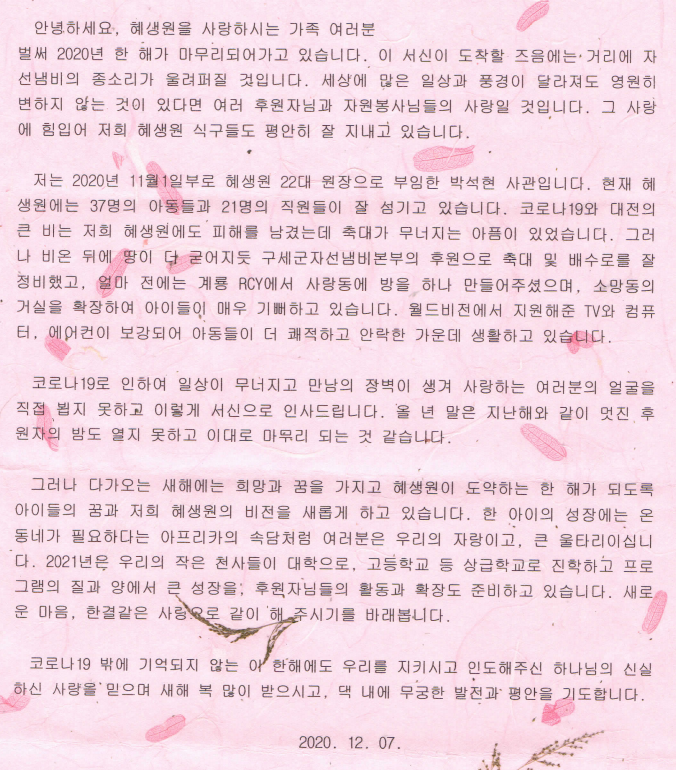 안녕하세요, 혜생원을 사랑하시는 가족 여러분
벌써 2020년 한 해가 마무리되어가고 있습니다. 이 서신이 도착할 즈음에는 거리에 자
선냄비의 종소리가 울려퍼질 것입니다. 세상에 많은 일상과 풍경이 달라져도 영원히
변하지 않는 것이 있다면 여러 후원자님과 자원봉사님들의 사랑일 것입니다. 그 사랑
에 힘입어 저희 혜생원 식구들도 평안히 잘 지내고 있습니다.
저는 2020년 11월1일부로 혜생원 22대 원장으로 부임한 박석현 사관입니다. 현재 혜
생원에는 37명의 아동들과 21명의 직원들이 잘 섬기고 있습니다. 코로나19와 대전의
큰 비는 저희 혜생원에도 피해를 남겼는데 축대가 무너지는 아픔이 있었습니다. 그러
나 비온 뒤에 땅이 더 굳어지듯 구세군자선냄비본부의 후원으로 축대 및 배수로를 잘
정비했고, 얼마 전에는 계룡 RCY에서 사랑동에 방을 하나 만들어주셨으며, 소망동의
거실을 확장하여 아이들이 매우 기뻐하고 있습니다. 월드비전에서 지원해준 TV와 컴퓨
터, 에어컨이 보강되어 아동들이 더 쾌적하고 안락한 가운데 생활하고 있습니다.
코로나19로 인하여 일상이 무너지고 만남의 장벽이 생겨 사랑하는 여러분의 얼굴을
직접 뵙지 못하고 이렇게 서신으로 인사드립니다. 올 년 말은 지난해와 같이 멋진 후
원자의 밤도 열지 못하고 이대로 마무리 되는 것 같습니다.
그러나 다가오는 새해에는 희망과 꿈을 가지고 혜생원이 도약하는 한 해가 되도록
아이들의 꿈과 저희 혜생원의 비전을 새롭게 하고 있습니다. 한 아이의 성장에는 온
동네가 필요하다는 아프리카의 속담처럼 여러분은 우리의 자랑이고, 큰 울타리이십니
다. 2021년은 우리의 작은 천사들이 대학으로, 고등학교 등 상급학교로 진학하고 프로
그램의 질과 양에서 큰 성장을, 후원자님들의 활동과 확장도 준비하고 있습니다. 새로
운 마음, 한결같은 사랑으로 같이 해 주시기를 바래봅니다.
코로나19 밖에 기억되지 않는 이 한해에도 우리를 지키시고 인도해주신 하나님의 신실
하신 사랑을 믿으며 새해 복 많이 받으시고, 댁 내에 무궁한 발전과 평안을 기도합니다.
2020. 12. 07.